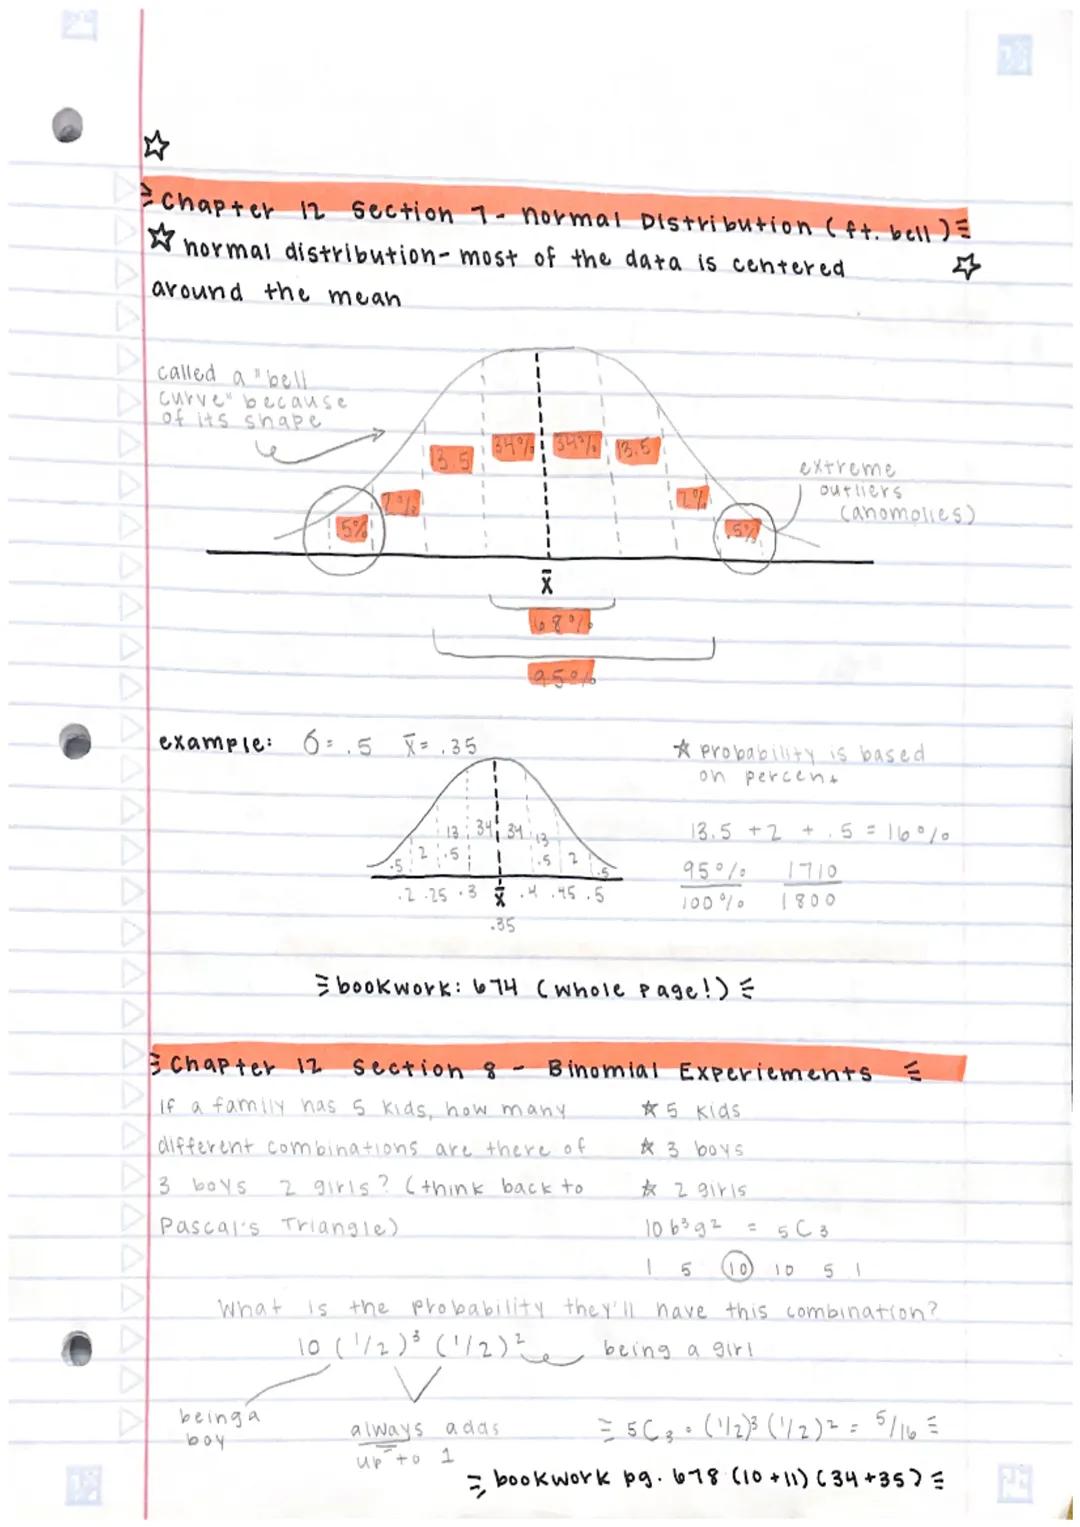 Chapter 12 Section 7- normal Distribution (ft. bell)
normal distribution- most of the data is centered
around the mean
called a "bell
curve" because
of its shape
34% 34%
13.5 13.5
2% 2%
.5% .5%
extreme
outliers
(anomolies)
x̄
68%
95%
example: σ= .5 x̄= .35
★ probability is based
on percent
13 34 34 13
.5 2 .5 .5 2 .5
.2 .25 .3 x̄ .4 .45 .5
.35
13.5 +2 + .5 = 16%
95% 1710
100% 1800
bookwork: 674 (whole page!)
Chapter 12 Section 8 - Binomial Experiements
If a family has 5 kids, how many
different combinations are there of
3 boys 2 girls? (think back to
Pascal's Triangle)
★ 5 kids
★ 3 boys
★ 2 girls
10 b³g² = 5C3
1 5 10 10 5 1
What is the probability they'll have this combination?
10 (1/2)³ (1/2)² being a girl
being a
boy
always adds
up to 1
5C3 · (1/2)³ (1/2)² = 5/16
bookwork pg. 678 (10+11) (34+35)